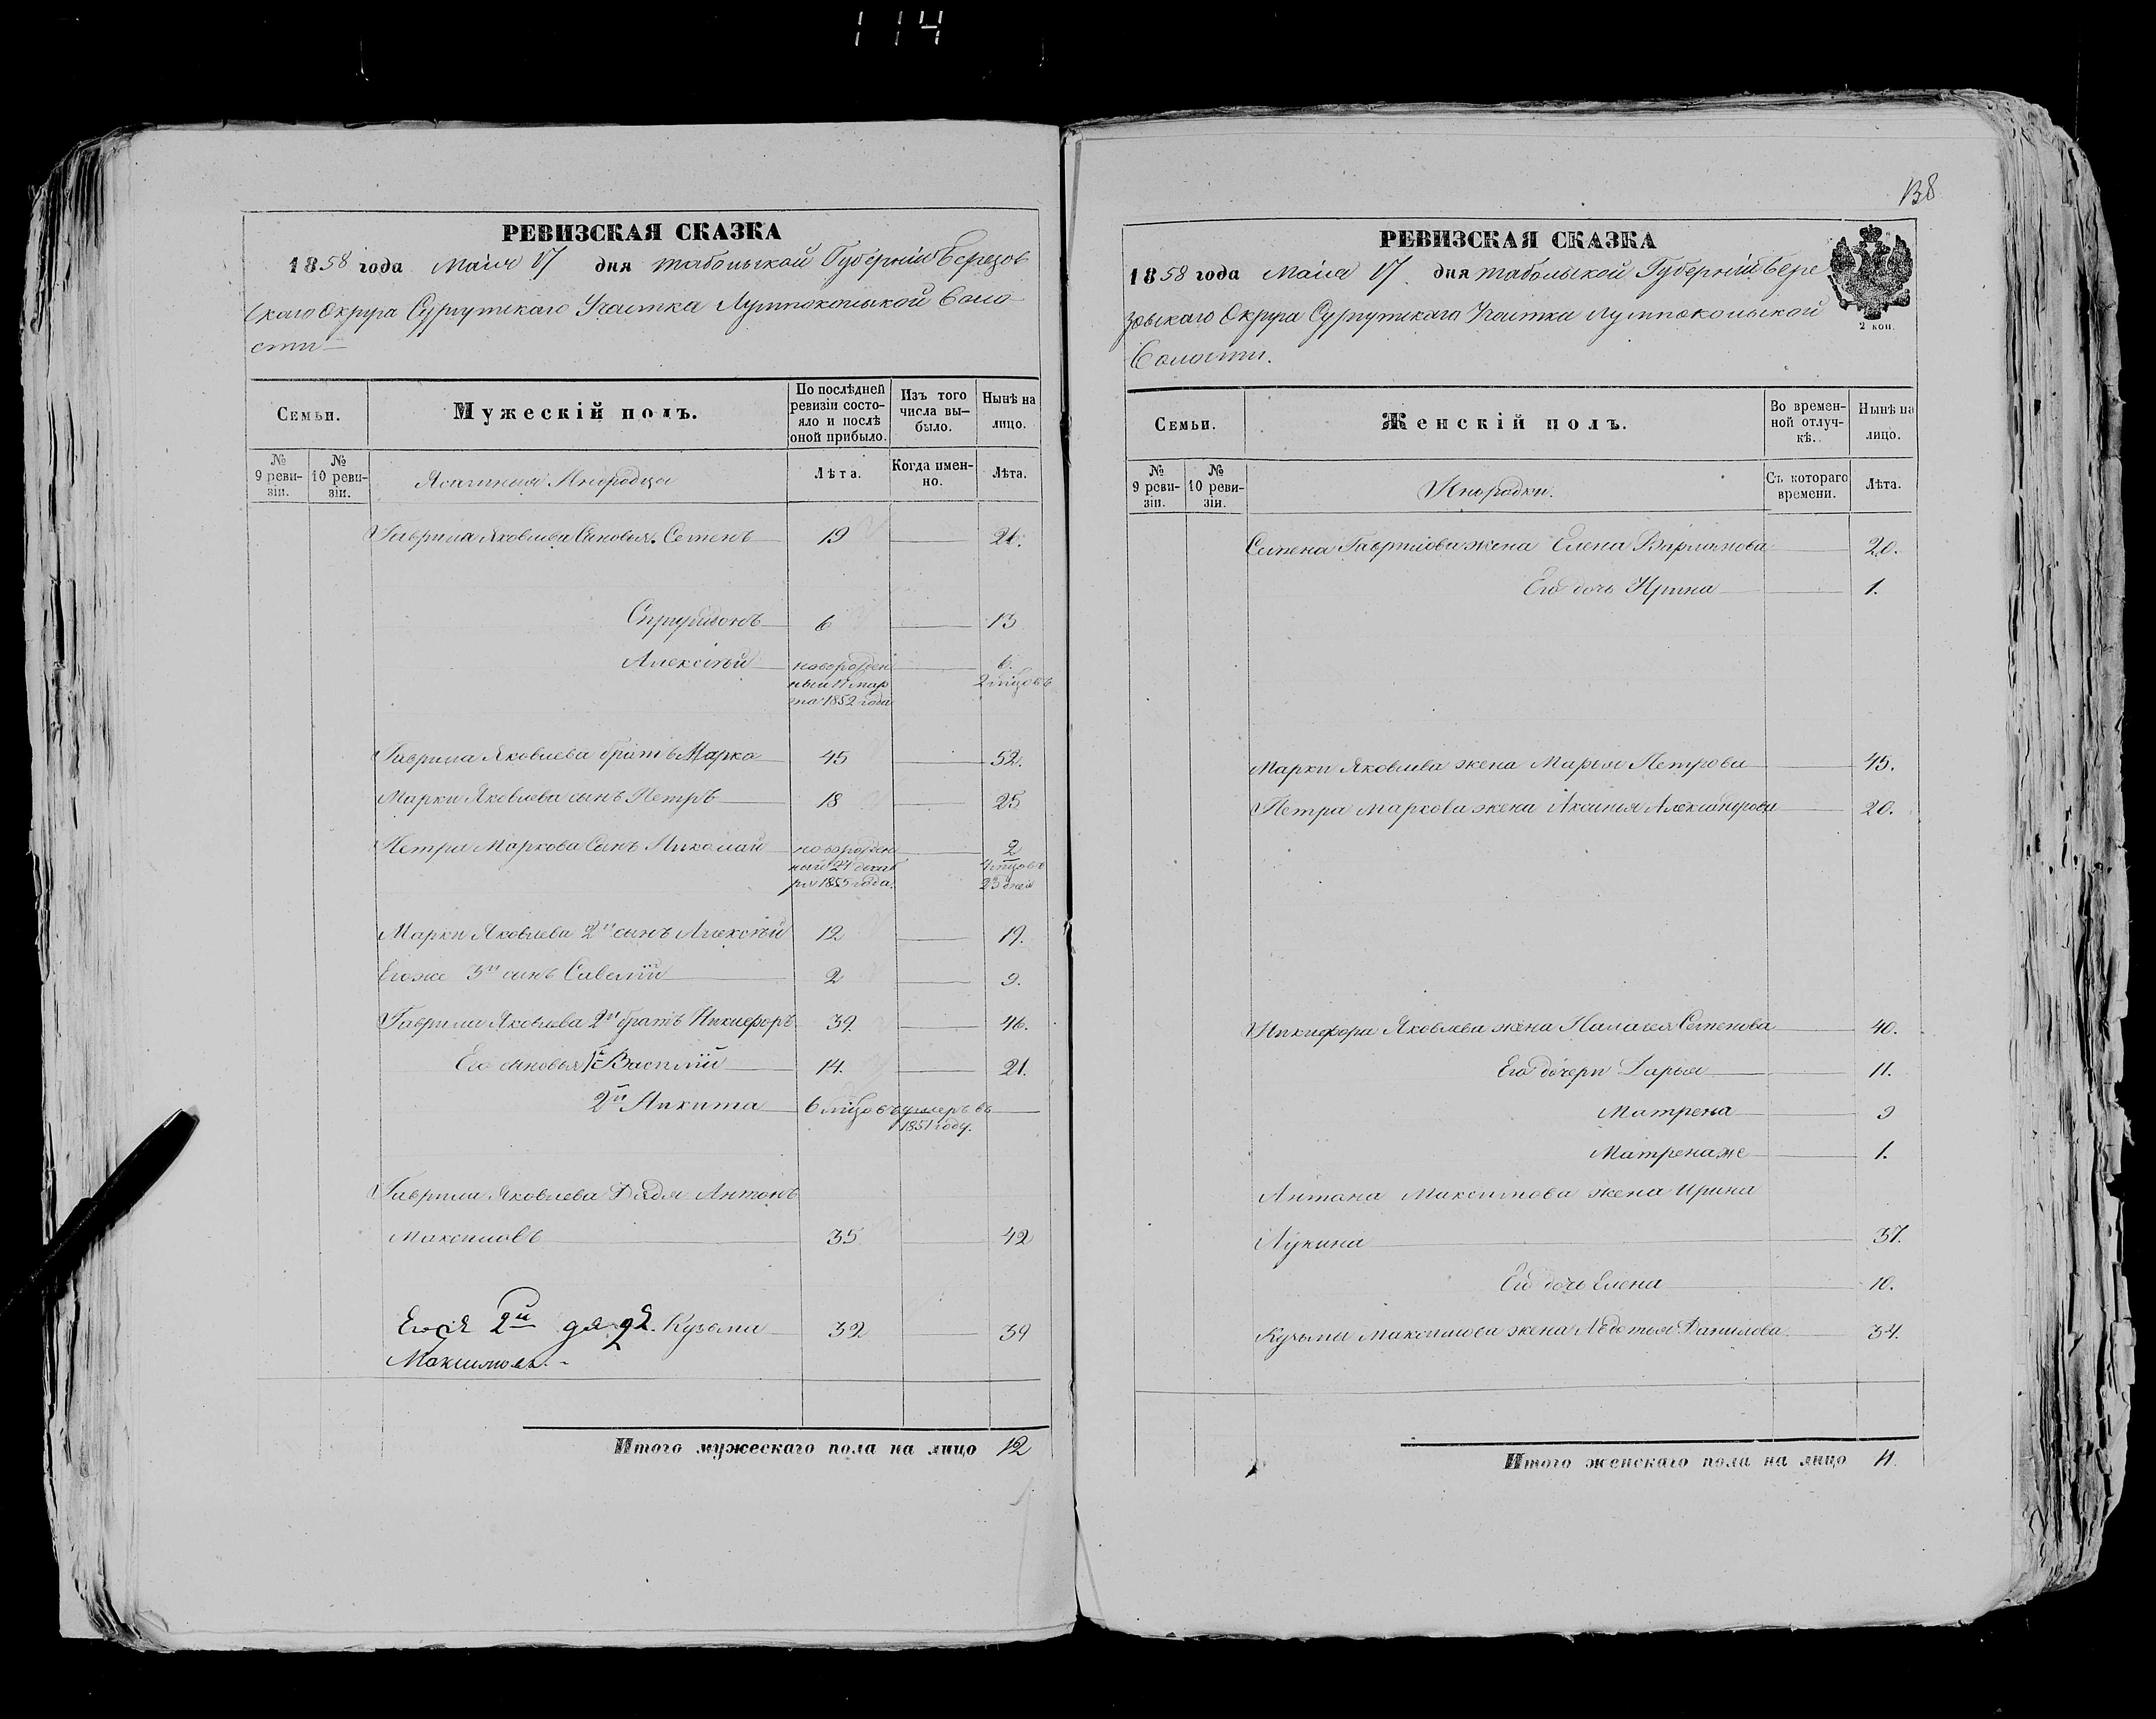 114
РЕВИЗСКАЯ СКАЗКА
1858 года Маія 17 дня табольской Губерніи Березов
скаго Округа Сургутскаго Участка Лумпокольской Воло
сти
Семьи.
Мужескій полъ.
По послѣдней ревизіи состояло и послѣ оной прибыло.
Изъ того числа выбыло.
Нынѣ на лицо.
№ 9 ревизіи.
№ 10 ревизіи.
Ясашныя Инородцы
Лѣта.
Когда именно.
Лѣта.
Гаврила Яковлева Сыновья. Семенъ 19 21.
Спиридонъ 6 13
Алексѣй новорожден 6.
ный 17 мар 2 мѣцовъ
та 1852 года
Гаврила Яковлева братъ Марко 45 52.
Марки Яковлева сынъ Петръ 18 25
Петра Маркова Сынъ Николай новорожден 2
ный 24 декаб 4 мѣцовъ
ря 1855 года. 23 дней
Марки Яковлева 2й сынъ Алексѣй 12 19.
Егоже 3й сынъ Савелій 2 9.
Гаврила Яковлева 2й братъ Никифоръ 39. 46.
Его сыновья 1й Василій 14. 21.
2й Никита 6 мѣцовъ умеръ въ
1851 году.
Гаврила Яковлева Дядя Антонъ
Максимовъ 35 42
2й дядя Кузьма 32 39
Максимовъ.
Итого мужескаго пола на лицо 12
138
РЕВИЗСКАЯ СКАЗКА
1858 года Маія 17 дня табольской Губерніи Бере
зовскаго Округа Сургутскаго Участка Лумпокольской
Волости.
2 коп.
Семьи.
Женскій полъ.
Во временной отлучкѣ.
Нынѣ на лицо.
№ 9 ревизіи.
№ 10 ревизіи.
Инородки.
Съ котораго времени.
Лѣта.
Семена Гаврилова жена Елена Варламова 20.
Его дочь Ирина 1.
Марки Яковлева жена Марья Петрова 45.
Петра Маркова жена Аксинья Александрова 20.
Никифора Яковлева жена Палагея Семенова 40.
Его дочери Дарья 11.
Матрена 9
Матренаже 1.
Антона Максимова жена Ирина
Лукина 37.
Его дочь Елена 10.
Кузьмы Максимова жена Авдотья Данилова 34.
Итого женскаго пола на лицо 11.